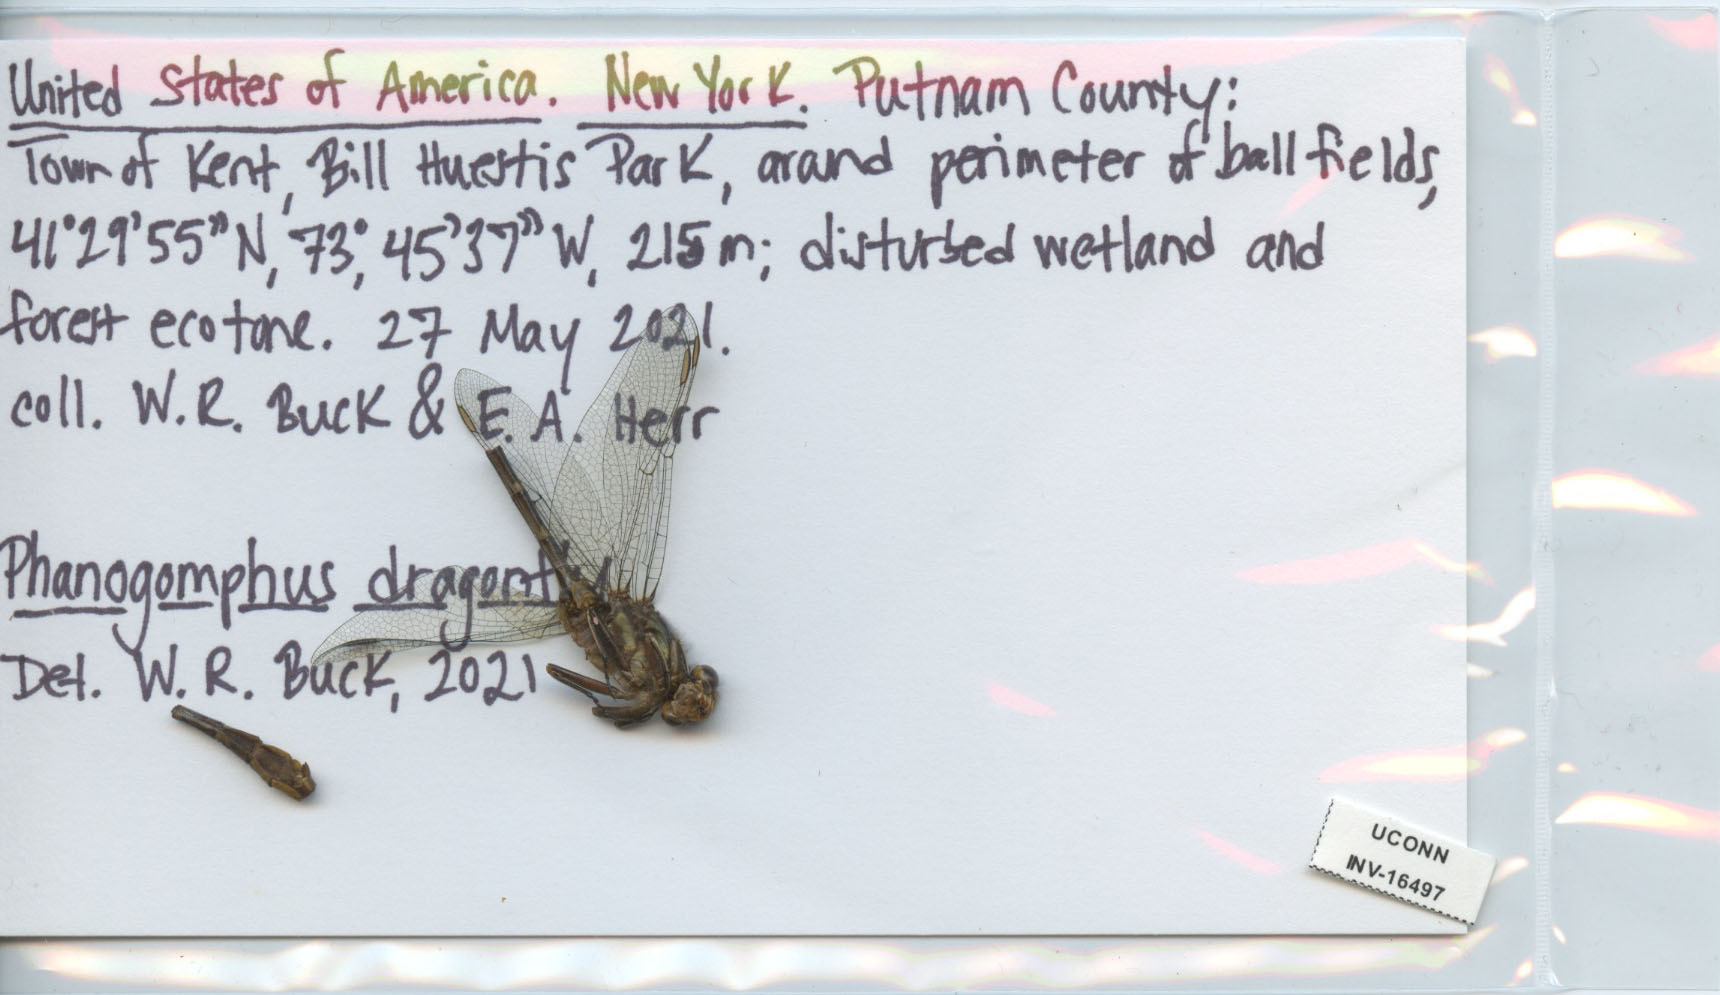 United States of America. New York. Putnam County:
Town of Kent, Bill Huestis Park, around perimeter of ball fields,
41°29'55"N, 73°, 45'37"W, 215m; disturbed wetland and
forest ecotone. 27 May 2021.
coll. W.R. Buck & E. A. Herr
Phanogomphus
Det. W. R. Buck, 2021
UCONN
INV-16497